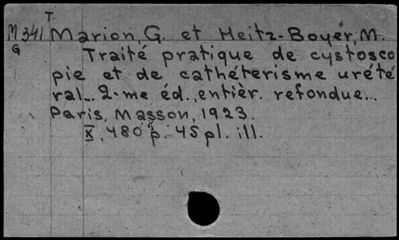 T
M 341 Marion, G. et Heitz-Boyer, M.
G
Traité pratique de cystosco
pie et de cathéterisme urété
ral.. 2-me éd., entièr. refondue..
Paris, Masson, 1923.
X, 480 p. 45 pl. ill.